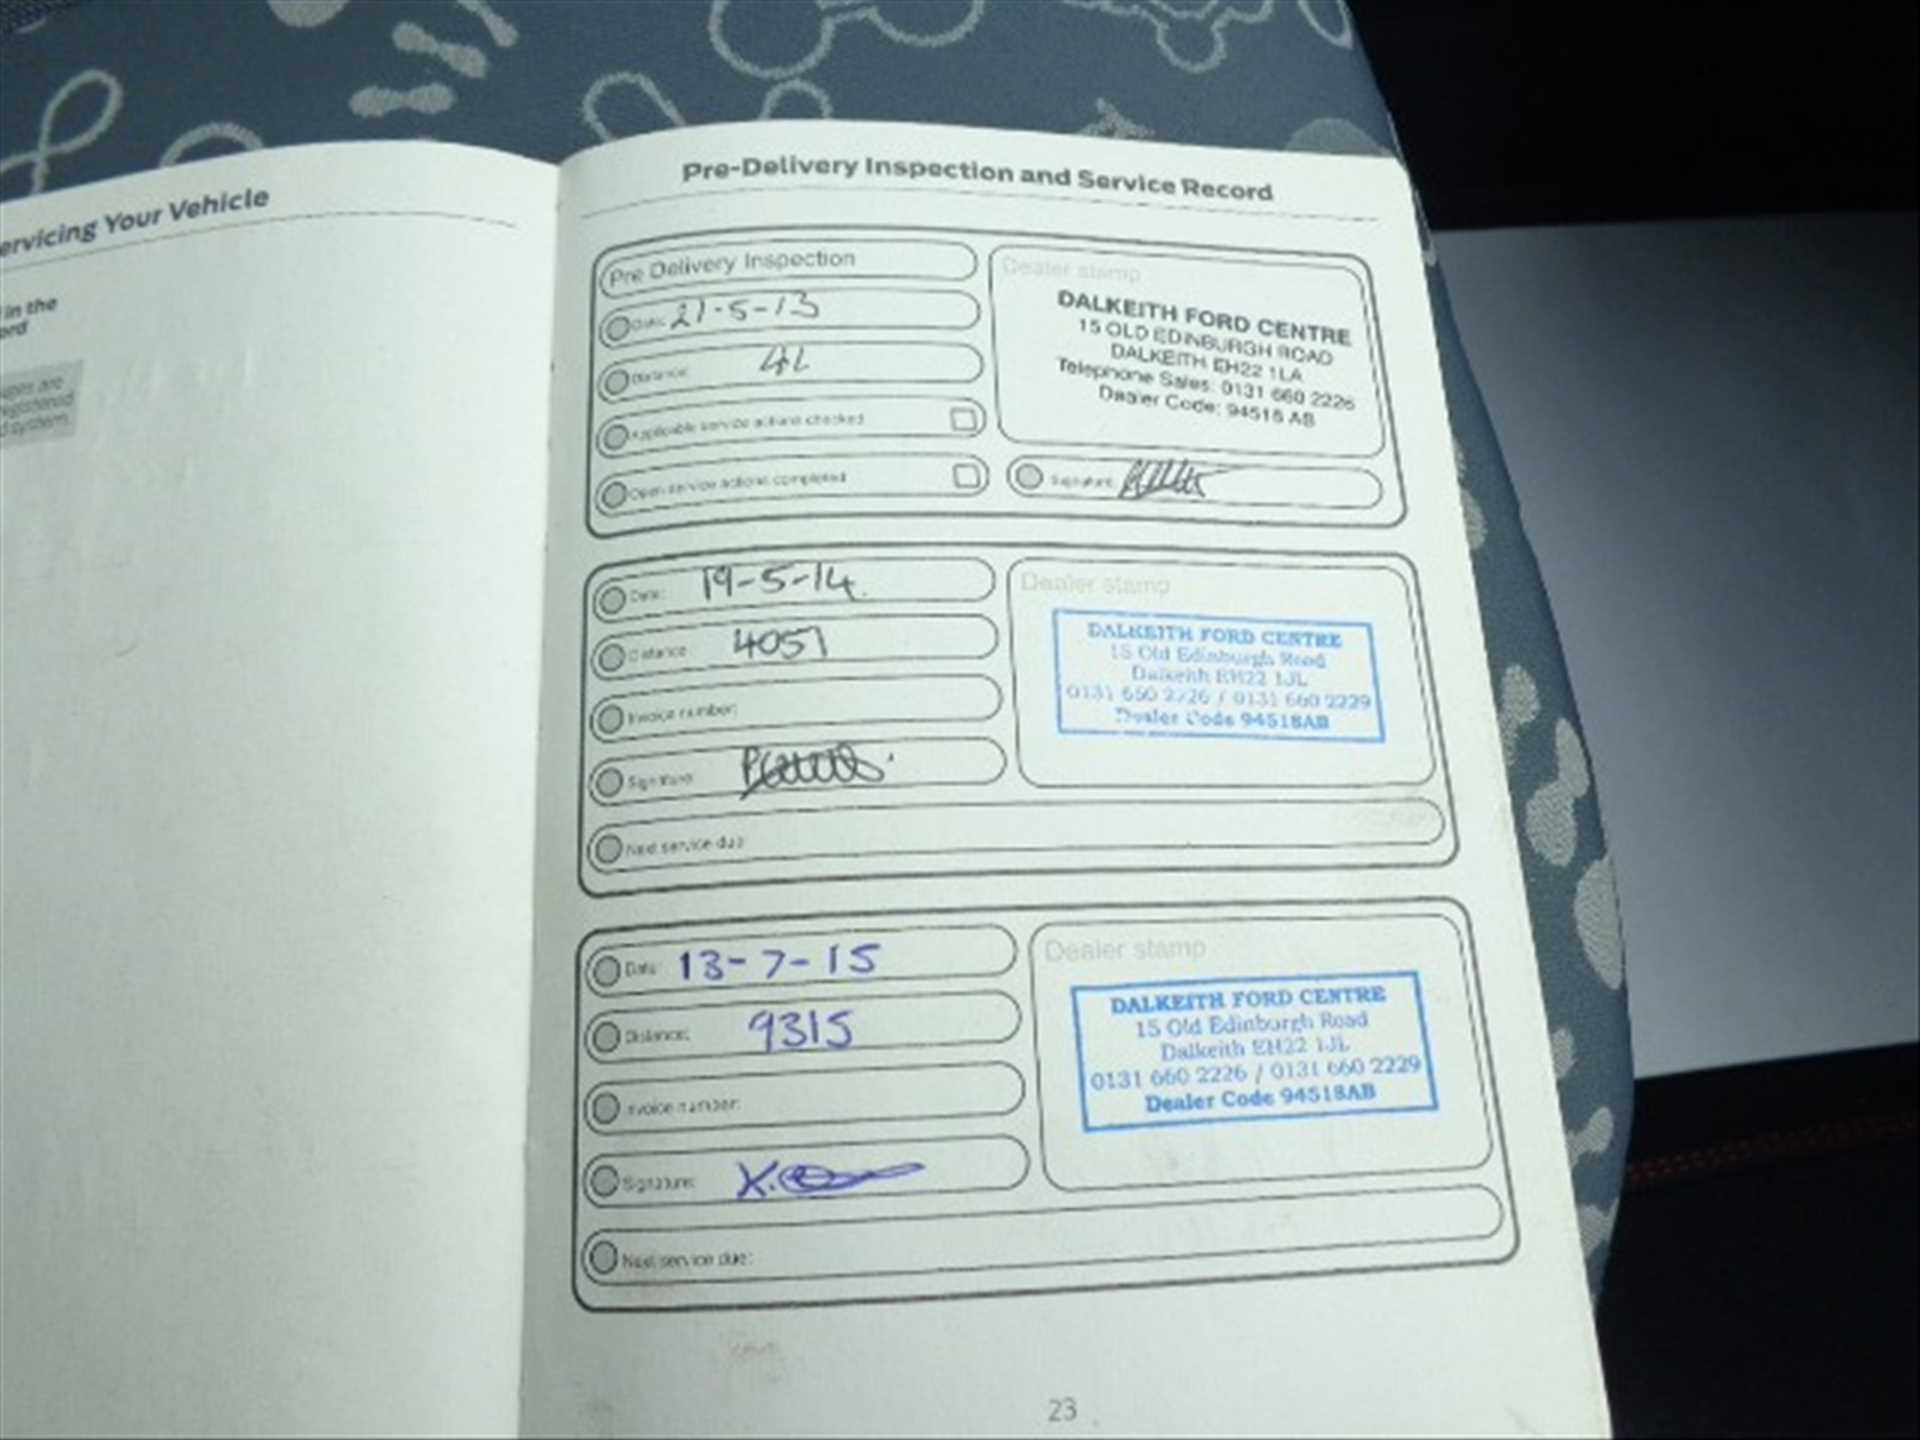 ervicing Your Vehicle
in the
ord
are
registered
system.
Pre-Delivery Inspection and Service Record
Pre Delivery Inspection
Date: 21-5-13
Distance:
Applicable service actions checked
Open service actions completed
Dealer stamp
DALKEITH FORD CENTRE
15 OLD EDINBURGH ROAD
DALKEITH EH22 1LA
Telephone Sales: 0131 660 2226
Dealer Code: 94518 AB
Signature:
Date: 19-5-14.
Distance: 4051
Invoice number:
Signature:
Next service due:
Dealer stamp
DALKEITH FORD CENTRE
15 Old Edinburgh Road
Dalkeith EH22 1JL
0131 660 2226 / 0131 660 2229
Dealer Code 94518AB
Date: 13-7-15
Distance: 9315
Invoice number:
Signature:
Next service due:
Dealer stamp
DALKEITH FORD CENTRE
15 Old Edinburgh Road
Dalkeith EH22 1JL
0131 660 2226 / 0131 660 2229
Dealer Code 94518AB
23